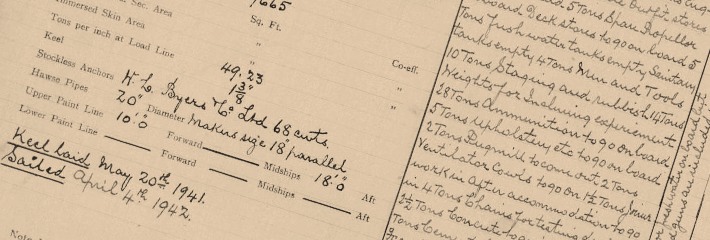 Sec. Area 7665
Immersed Skin Area Sq. Ft.
Tons per inch at Load Line „
Keel 49.23 Co-eff.
Stockless Anchors W. L. Byers & Co Ltd 68 cwts.
Hawse Pipes 20" Diameter Makers size 18" parallel
Upper Paint Line Forward Midships 18'.0 Aft
Lower Paint Line 10'.0 Forward Midships Aft
Keel laid May 20th 1941.
Sailed April 4th 1942.
Note
and 5 Tons Spare Propellor
board Deck stores to go on board 5
Tons fresh water tanks empty Sanitary
tanks empty 4 Tons Men and Tools
10 Tons Staging and rubbish 14 Tons
Weights for Inclining experiment
28 Tons Ammunition to go on board
5 Tons Upholstery etc to go on board
2 Tons to come out 2 Tons
Ventilator Cowls to go on 1½ Tons
work in after accommodation to go
in 4 Tons Chains for testing
2½ Tons Concrete to go
Tons